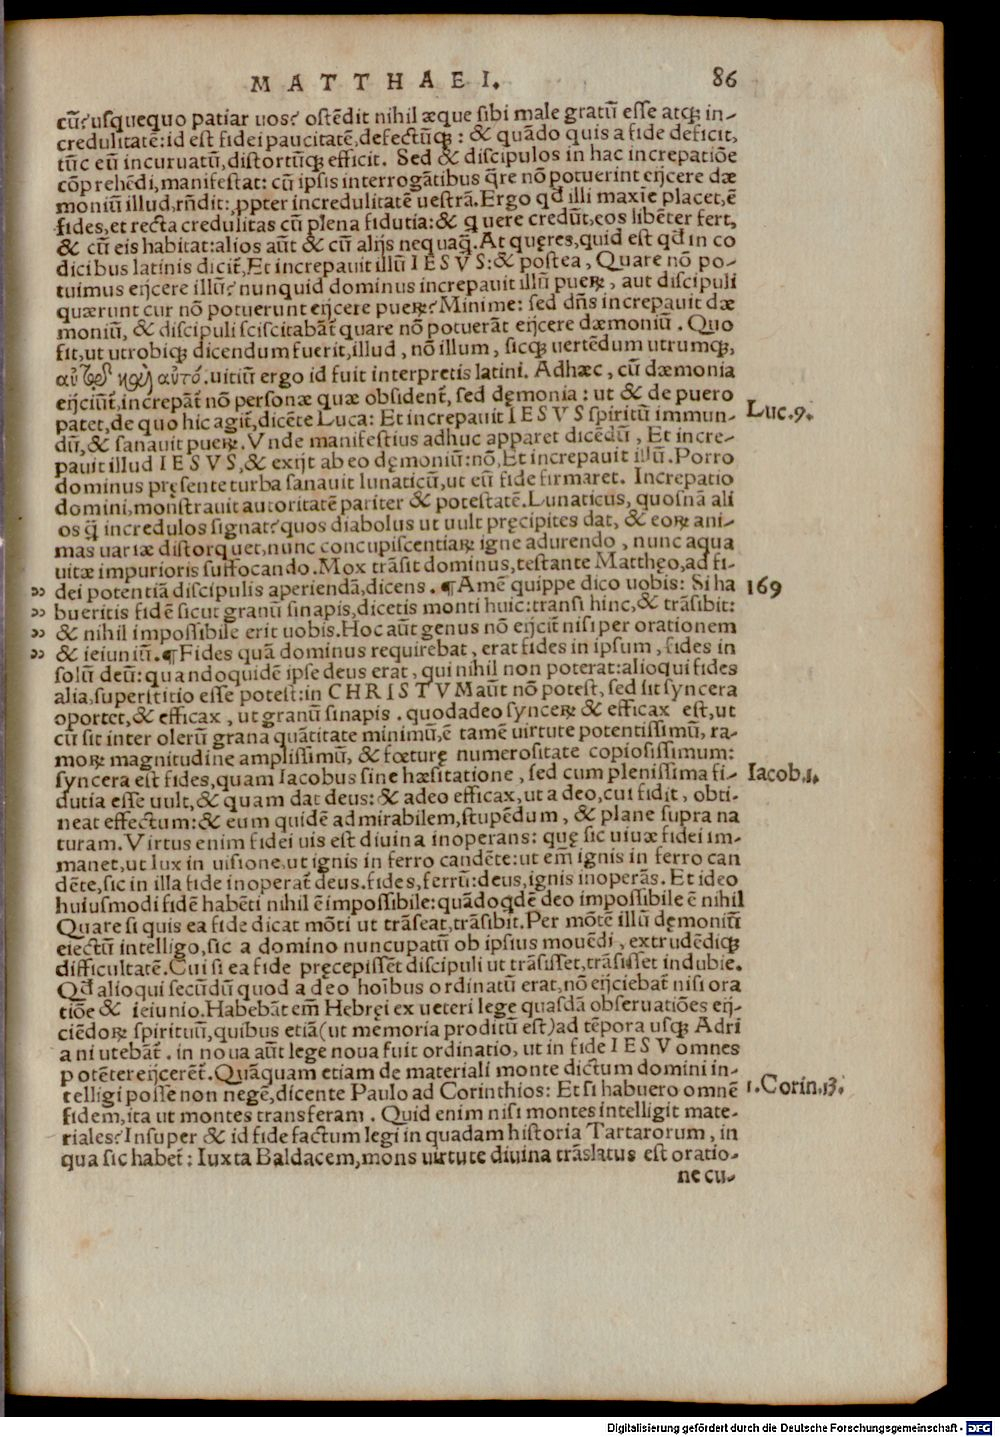 MATTHAEI. 86
cū?usquequo patiar uos? ostēdit nihil æque sibi male gratū esse atq; in-
credulitatē:id est fidei paucitatē,defectūq; : & quādo quis a fide deficit,
tūc eū incuruatū,distortūq; efficit. Sed & discipulos in hac increpatiōe
cōprehēdi,manifestat: cū ipsis interrogātibus q̄re nō potuerint eijcere dæ
monium illud,rn̄dit: ꝓpter incredulitatē uestrā.Ergo qd̄ illi maxie placet,ē
fides,et recta credulitas cū plena fidutia:& q uere credūt,eos libēter fert,
& cū eis habitat:alios aūt & cū alijs nequaq̄.At quęres,quid est qd̄ in co
dicibus latinis dicit̄,Et increpauit illū IESVS:& postea, Quare nō po-
tuimus eijcere illū? nunquid dominus increpauit illū pueꝝ, aut discipuli
quærunt cur nō potuerunt eijcere pueꝝ?Minime: sed dn̄s increpauit dæ
moniū, & discipuli sciscitabāt̄ quare nō potuerāt eijcere dæmoniū. Quo
fit,ut utrobiq; dicendum fuerit,illud, nō illum, sicq; uertēdum utrumq;,
αὐτῷ καὶ αὐτό.uitiū ergo id fuit interpretis latini. Adhæc, cū dæmonia
eijciūt̄,increpāt̄ nō personæ quæ obsident̄, sed dęmonia: ut & de puero
patet,de quo hic agit̄,dicēte Luca: Et increpauit IESVS spiritū immun-
Luc.9.
dū,& sanauit pueꝝ.Vnde manifestius adhuc apparet dicēdū, Et incre-
pauit illud IESVS,& exijt ab eo dęmoniū:nō,Et increpauit illū.Porro
dominus pręsente turba sanauit lunaticū,ut eū fide firmaret. Increpatio
domini,monstrauit autoritatē pariter & potestatē.Lunaticus, quosnā ali
os q̄ incredulos signat?quos diabolus ut uult pręcipites dat, & eoꝝ ani-
mas uariæ distorquet,nunc concupiscentiaꝝ igne adurendo, nunc aqua
uitæ impurioris suffocando.Mox trāsit dominus,testante Matthęo,ad fi-
dei potentiā discipulis aperiendā,dicens. ¶Amē quippe dico uobis: Si ha
169
bueritis fidē sicut granū sinapis,dicetis monti huic:transi hinc,& trāsibit:
& nihil impossibile erit uobis.Hoc aūt genus nō eijcit̄ nisi per orationem
& ieiuniū.¶Fides quā dominus requirebat, erat fides in ipsum, fides in
solū deū:quandoquidē ipse deus erat, qui nihil non poterat:alioqui fides
alia,superstitio esse potest:in CHRISTVM aūt nō potest, sed sit syncera
oportet,& efficax, ut granū sinapis. quodadeo synceꝝ & efficax est,ut
cū sit inter oleru̅ grana quātitate minimū,ē tamē uirtute potentissimū, ra-
moꝝ magnitudine amplissimū, & fœturę numerositate copiosissimum:
syncera est fides,quam Iacobus sine hæsitatione, sed cum plenissima fi-
Iacob.1.
dutia esse uult,& quam dat deus:& adeo efficax,ut a deo,cui fidit, obti-
neat effectum:& eum quidē admirabilem,stupēdum, & plane supra na
turam.Virtus enim fidei uis est diuina inoperans: quę sic uiuæ fidei im-
manet,ut lux in uisione,ut ignis in ferro candēte:ut em̄ ignis in ferro can
dēte,sic in illa fide inoperat̄ deus.fides,ferrū:deus,ignis inoperās. Et ideo
huiusmodi fidē habēti nihil ē impossibile:quādoqdē deo impossibile ē nihil
Quare si quis ea fide dicat mōti ut trāseat,trāsibit.Per mōtē illū dęmoniū
eiectū intelligo,sic a domino nuncupatū ob ipsius mouēdi, extrudēdiq;
difficultatē.Cui si ea fide pręcepissēt discipuli ut trāsisset,trāsisset indubie.
Qd̄ alioqui secūdū quod a deo hoībus ordinatū erat,nō eijciebat̄ nisi ora
tiōe & ieiunio.Habebāt em̄ Hebręi ex ueteri lege quasdā obseruatiōes eij-
ciēdoꝝ spirituū,quibus etiā(ut memoria proditū est)ad tēpora usq; Adri
ani utebāt̄. in noua aūt lege noua fuit ordinatio, ut in fide IESV omnes
potēter eijcerēt̄.Quāquam etiam de materiali monte dictum domini in-
telligi posse non negē,dicente Paulo ad Corinthios: Et si habuero omnē
1.Corin.13.
fidem,ita ut montes transferam. Quid enim nisi montes intelligit mate-
riales?Insuper & id fide factum legi in quadam historia Tartarorum, in
qua sic habet̄: Iuxta Baldacem,mons uirtute diuina trāslatus est oratio-
ne cu-
Digitalisierung gefördert durch die Deutsche Forschungsgemeinschaft - DFG